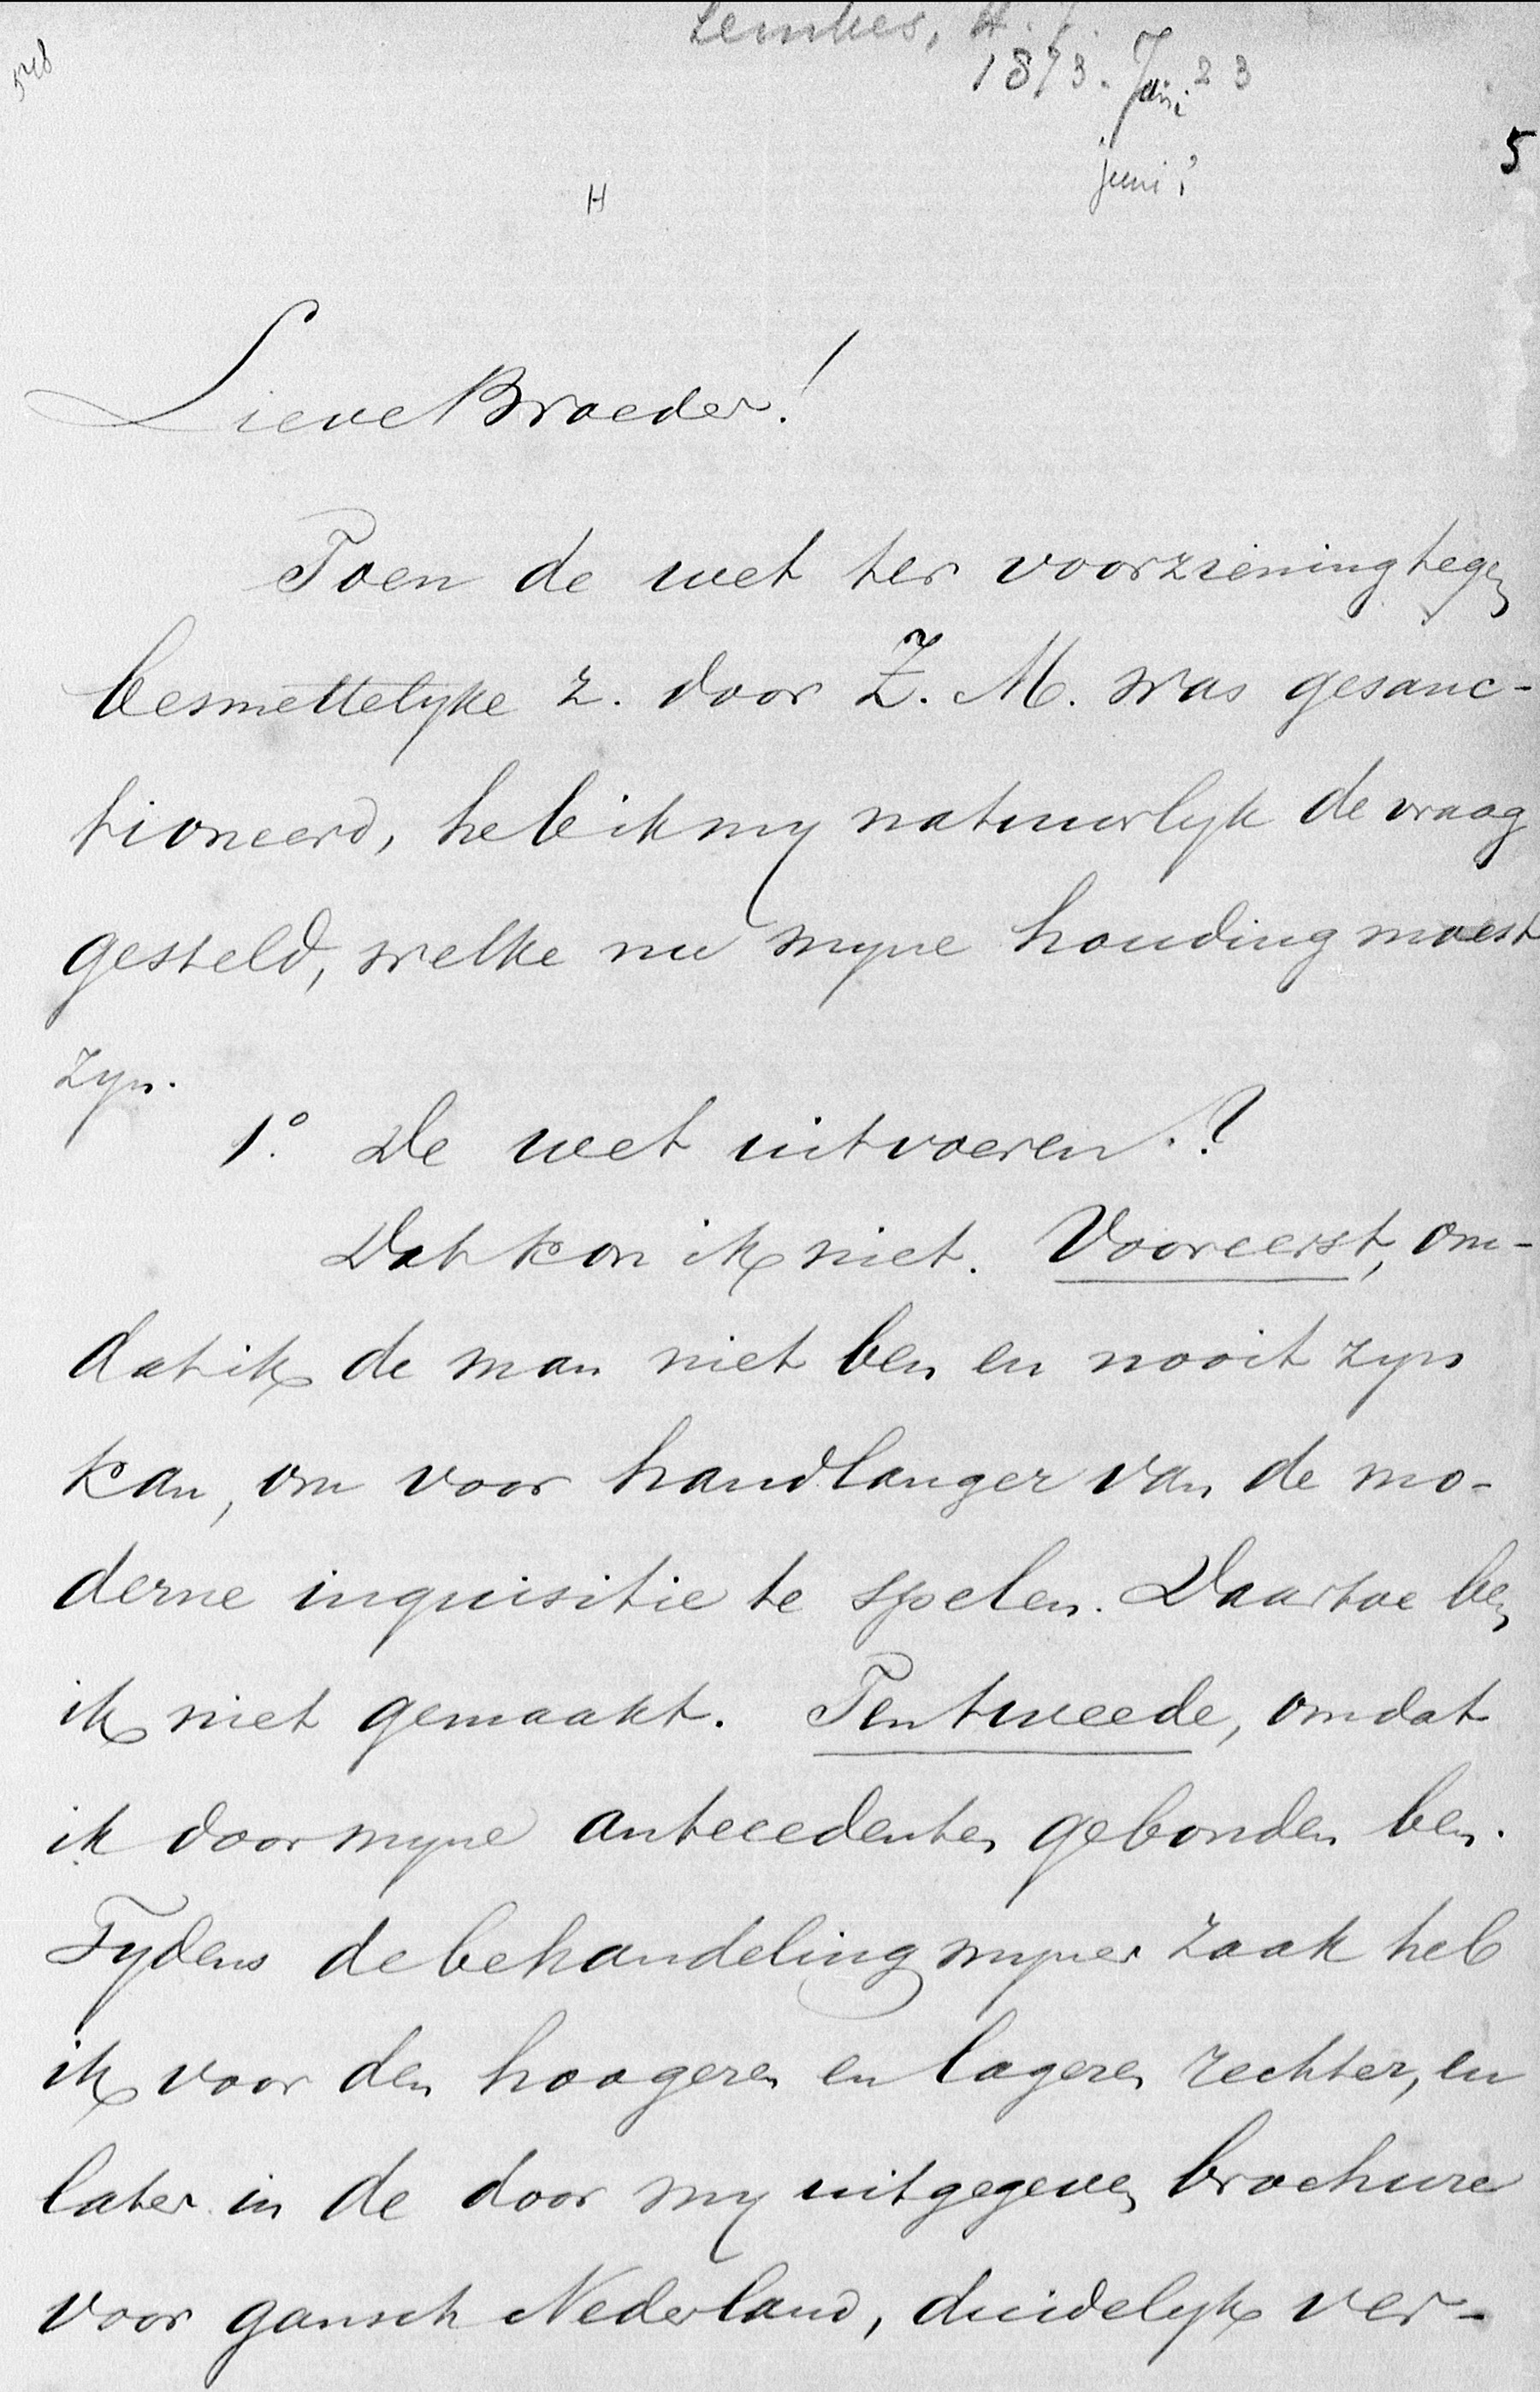 Lemkes, H. J.
1873. Juni 23
548
5
juni?
H
Lieve Broeder!
Toen de wet ter voorziening tegen
besmettelyke z. door Z. M. was gesanc-
tioneerd, heb ik my natuurlyk de vraag
gesteld, welke nu myne houding moest
zyn.
1.° De wet uitvoeren?
Dat kon ik niet. Vooreerst, om-
dat ik de man niet ben en nooit zyn
kan, om voor handlanger van de mo-
derne inquisitie te spelen. Daartoe ben
ik niet gemaakt. Ten tweede, omdat
ik door myne antecedenten gebonden ben.
Tydens de behandeling myner zaak heb
ik voor den hoogeren en lageren rechter, en
later in de door my uitgegeven brochure
voor gansch Nederland, duidelyk ver-